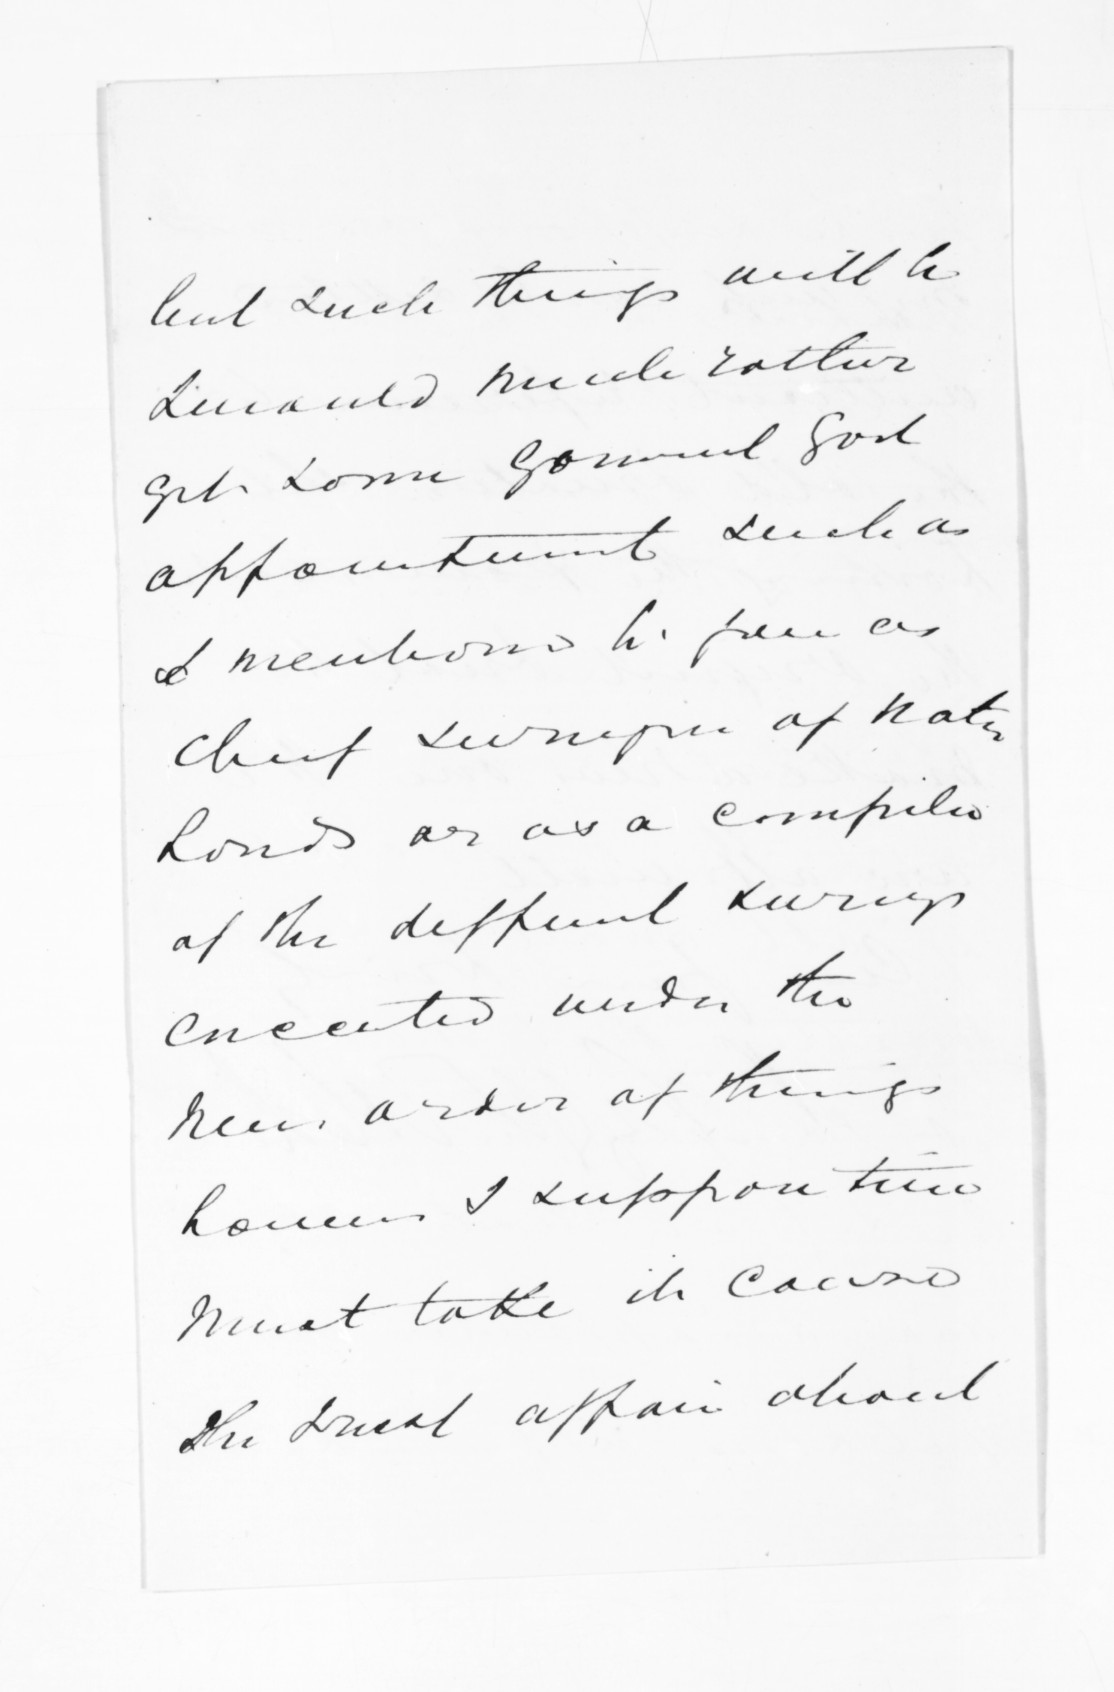 but such things will be
I would much rather
get some General Govt
appointment such as
I mentioned to you as
Chief Surveyor of Native
Lands or as a compiler
of the different surveys
executed under the
New order of things
however I suppose time
must take its course
The Trust affair about